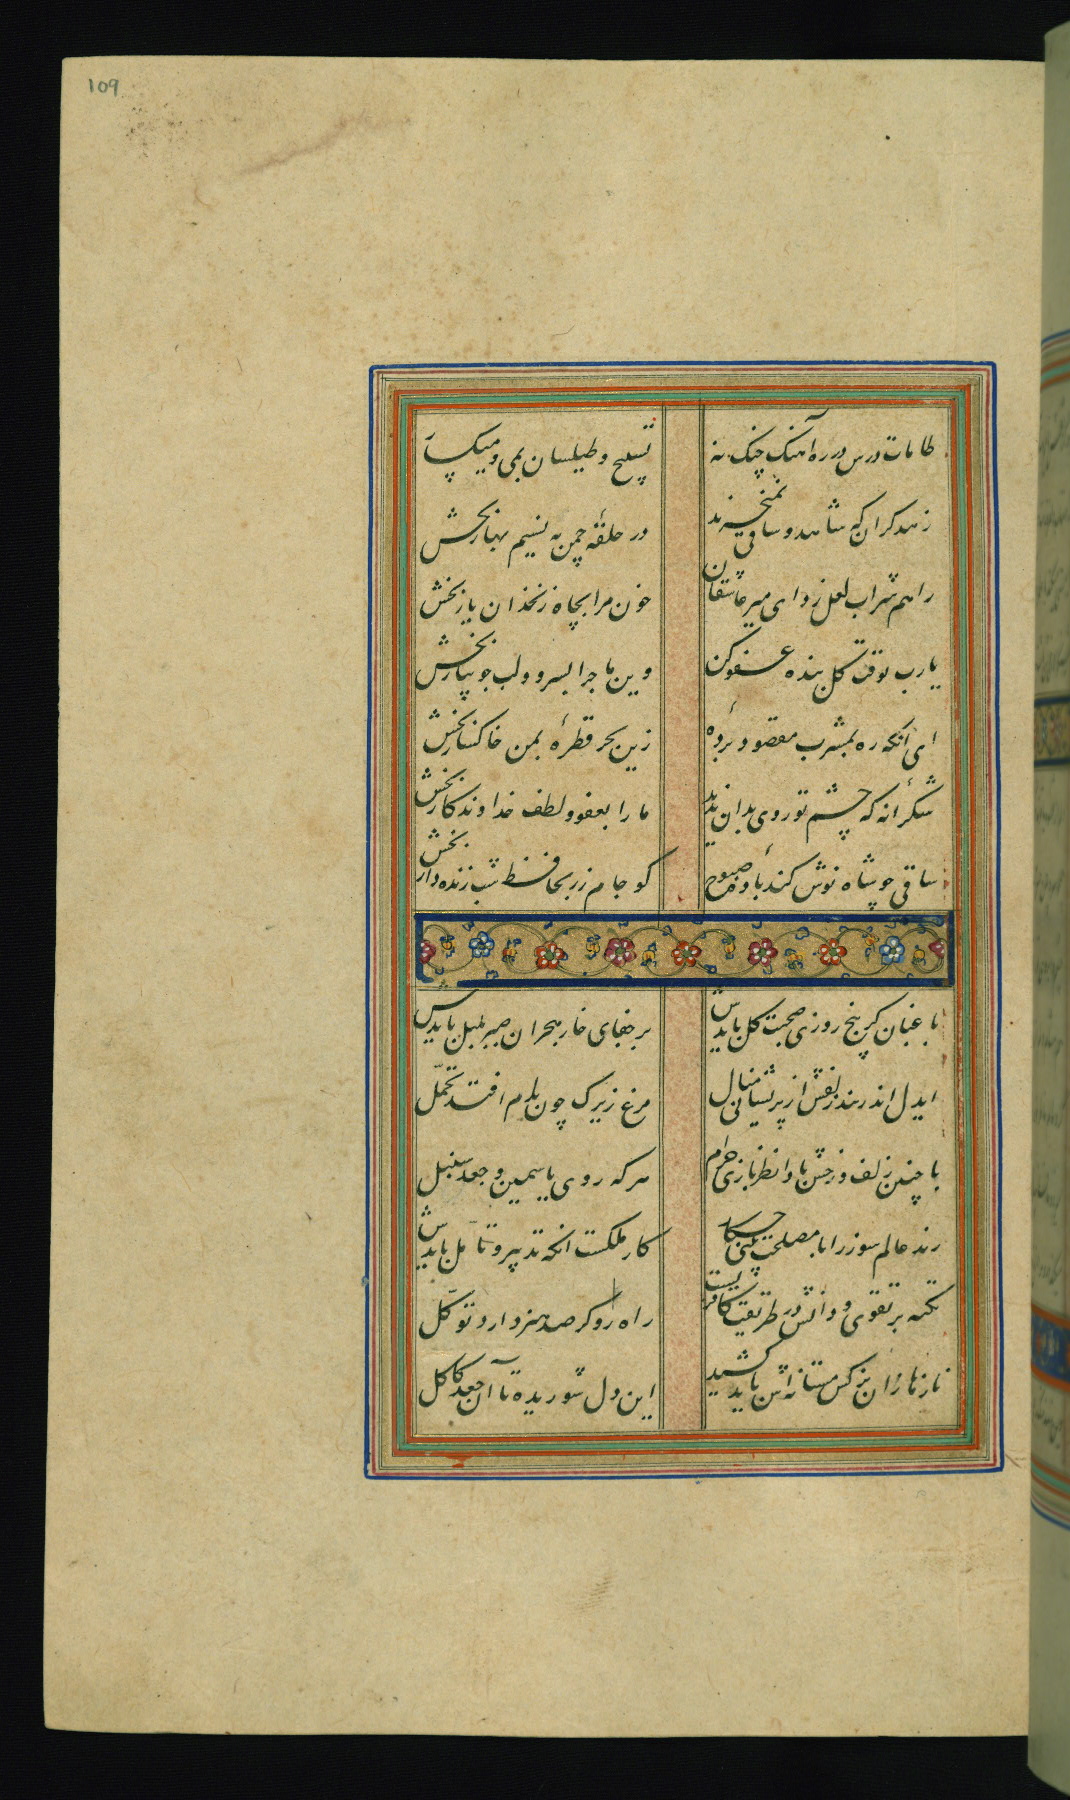 109
طامات و زرق در ره آهنگ چنگ نه
تسبیح و طیلسان بمی و میکسار
زهد گران که شاهد و ساقی نمیخرند
در حلقهٔ چمن به نسیم بهار بخش
راهم شراب لعل زد ای میر عاشقان
خون مرا بچاه زنخدان یار بخش
یارب بوقت گل بنده عفو کن
وین ماجرا بسرو و لب جویبار بخش
ای آنکه ره بمشرب مقصود بردهٔ
زین بحر قطرهٔ بمن خاکسار بخش
شکرانه که چشم تو روی بدان ندید
ما را بعفو و لطف خداوندکار بخش
ساقی چو شاه نوش کند بادهٔ صبوح
کو جام زر بحافظ شب زنده دار بخش
باغبان گر پنج روزی صحبت گل بایدش
بر جفای خار هجران صبر بلبل بایدش
ایدل اندر بند زلفش از پریشانی منال
مرغ زیرک چون بدام افتد تحمّل
با چنین زلف و رخش بادا نظر بازی حرام
هرکه روی یاسمین و جعد سنبل
رند عالم سوز را با مصلحت بینی چکار
کار ملکست آنکه تدبیر و تأمّل بایدش
تکیه بر تقوی و دانش در طریقت کافریست
راه رو گر صد هنر دارد توکّل
نازها زان نرگس مستانه اش باید کشید
این دل شوریده تا آن جعد کاکل